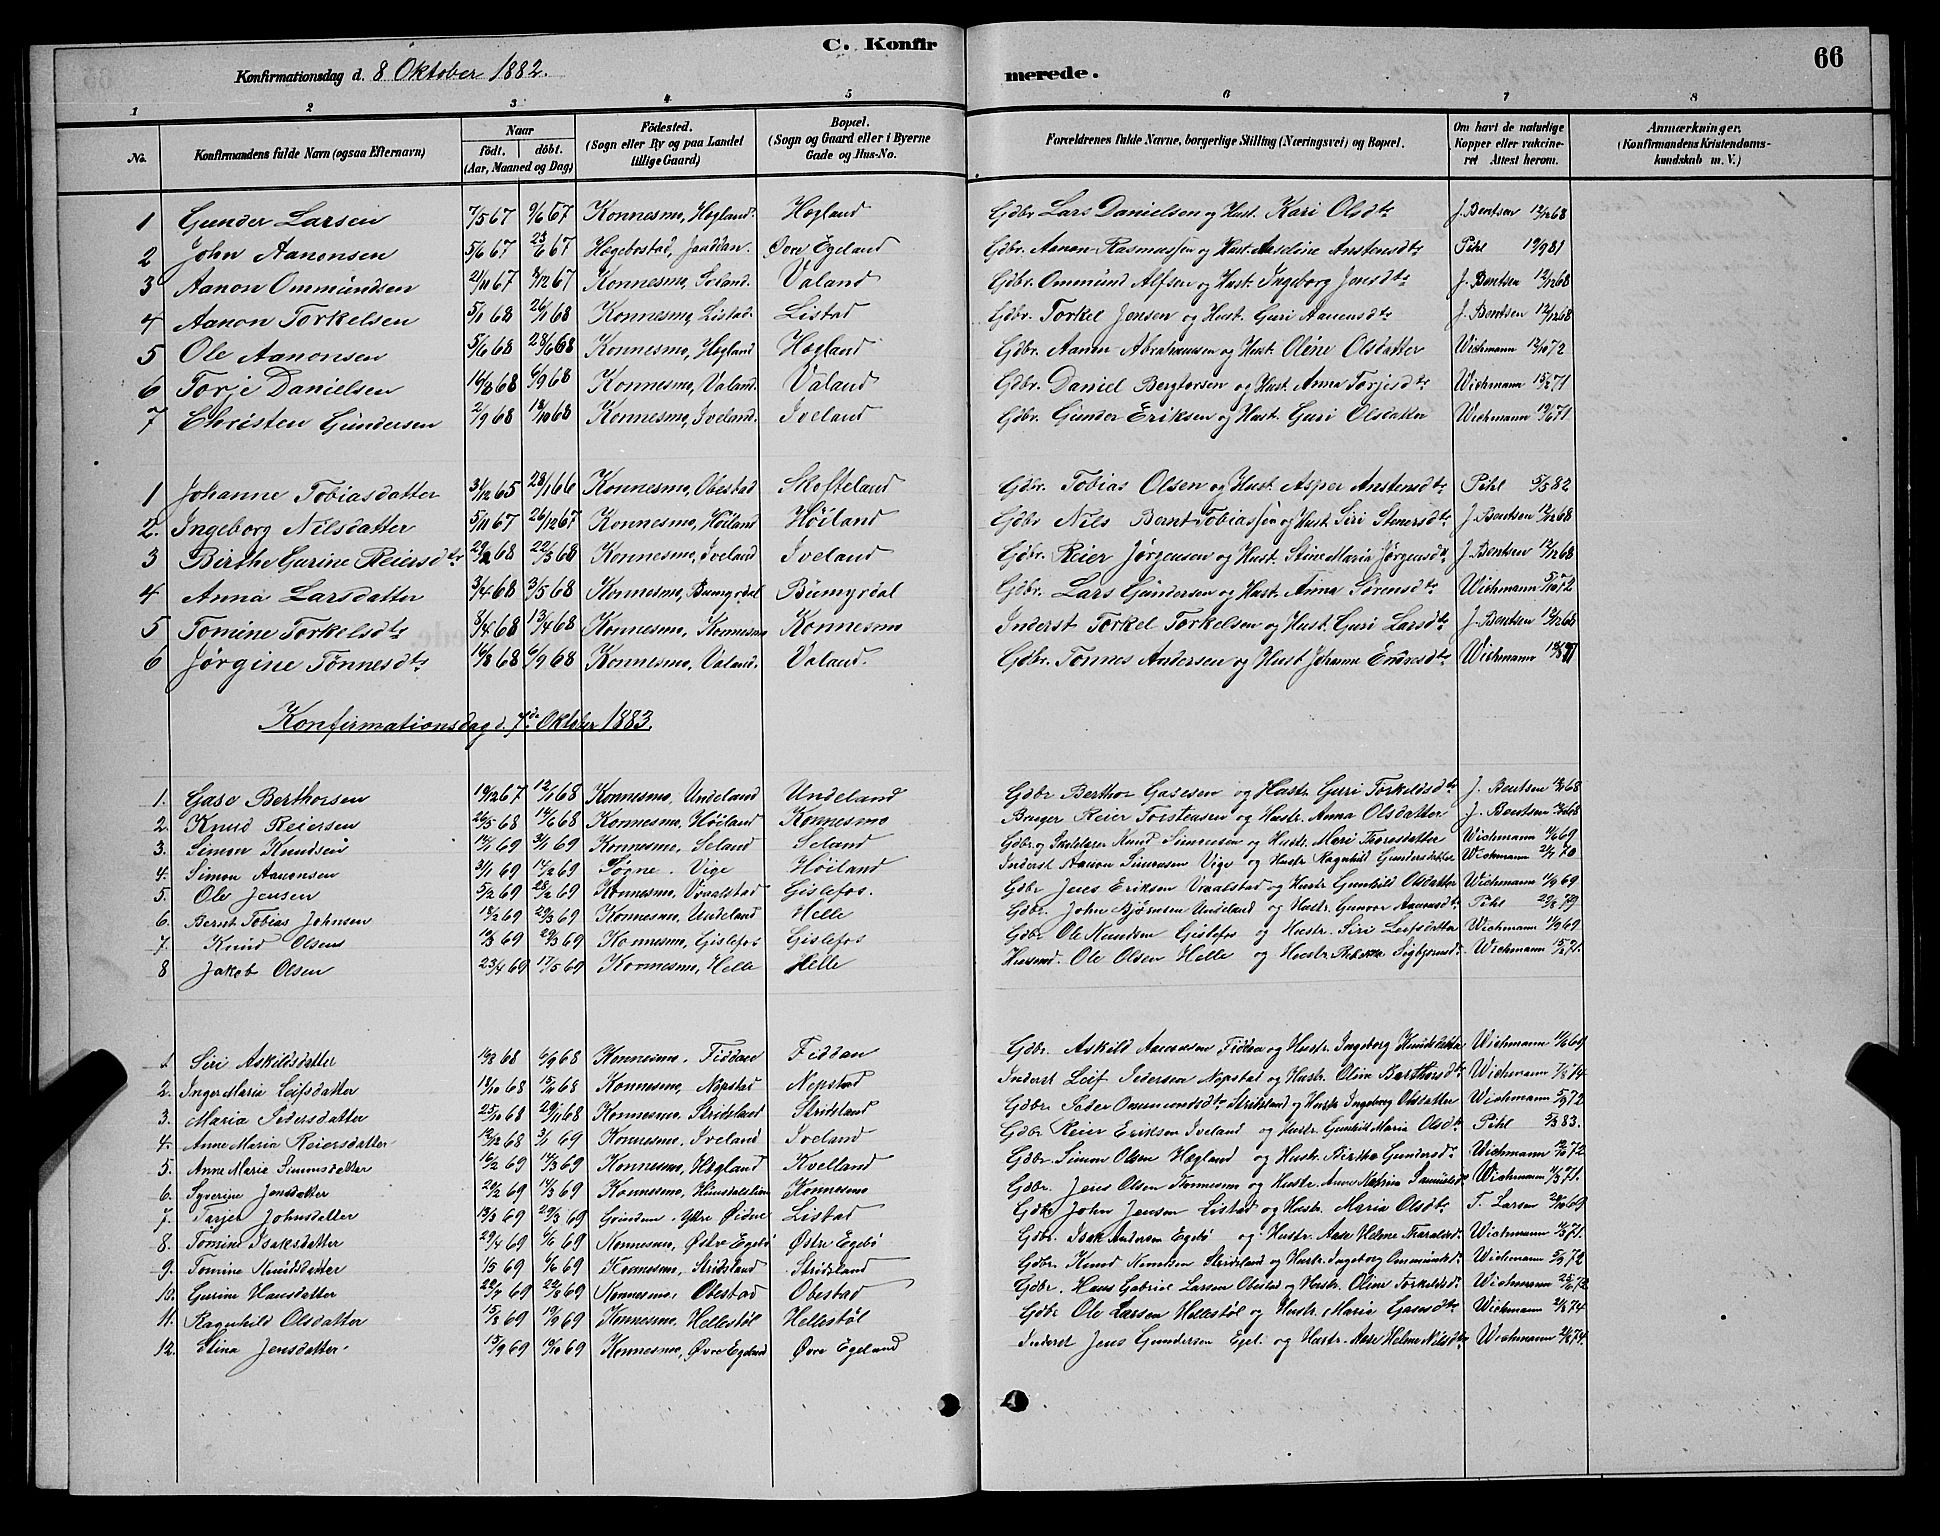 C. Konfirmerede. 66
Konfirmationsdag d. 8 Oktober 1882.
1 2 3 4 5 6 7 8
No. Konfirmandens fulde Navn (ogsaa Efternavn) Naar födt. döbt. (Aar, Maaned og Dag) Födested. (Sogn eller By og paa Landet tillige Gaard) Bopæl. (Sogn og Gaard eller i Byerne Gade og Hus-No. Forældrenes fulde Navne, borgerlige Stilling (Næringsvei) og Bopæl. Om havt de naturlige Kopper eller vakcineret Attest herom. Anmærkninger. (Konfirmandens Kristendomskundskab m. V.)
1 Gunder Larsen 7/5 67 9/6 67 Konnesmo, Høgland. Høgland Gdbr. Lars Danielsen og Hust. Kari Olsdtr J. Bentsen 12/12 68
2 John Aanonsen 5/6 67 23/6 67 Høgebostad, Øvre Egeland Gdbr. Aanon Rasmussen og Hust. Aseline Anstensdtr Pihl 19/9 81
3 Aanon Ommundsen 21/11 67 8/12 67 Konnesmo, Valand Gdbr. Ommund Alfsen og Hust. Ingeborg Jonsdtr J. Bentsen 12/12 68
4 Aanon Torkelsen 5/1 68 26/1 68 Konnesmo, Listad. Listad Gdbr. Torkel Jensen og Hust. Guri Aanensdtr J. Bentsen 12/12 68
5 Ole Aanonsen 5/6 68 28/6 68 Konnesmo, Høgland Høgland Gdbr. Aanon Abrahamsen og Hust. Oline Olsdatter Wichmann 12/10 72
6 Torje Danielsen 16/8 68 6/9 68 Konnesmo, Valand. Valand Gdbr. Daniel Bergtorsen og Hust. Anna Torjesdtr Wichmann 71
7 Christen Gundersen 2/9 68 18/10 68 Konnesmo, Iveland. Iveland Gdbr. Gunder Eriksen og Hust. Guri Olsdatter Wichmann 71
1 Johanne Tobiasdatter 31/12 65 28/1 66 Konnesmo, Obestad Skofteland Gdbr. Tobias Olsen og Hust. Asper Anstensdtr Pihl 5/5 82
2. Ingeborg Nilsdatter 5/11 67 26/12 67 Konnesmo, Höiland Höiland Gdbr Nils Bernt Tobiassen og Hust. Siri Stenersdtr J. Bentsen 12/12 68
3 Birthe Gurine Reiersdtr 68 22/3 68 Konnesmo, Iveland Iveland Gdbr. Reier Jørgensen og Hust. Stine Maria Jørgensdtr J. Bentsen 12/12 68
4 Anna Larsdatter 3/4 68 3/5 68 Konnesmo, Bumyrdal Bumyrdal Gdbr. Lars Gundersen og Hust. Anna Sørensdtr Wichmann 5/10 72
5 Tomine Torkelsdtr 8/4 68 13/4 68 Konnesmo, Konnesmo Konnesmo Inderst Torkel Torkelsen og Hust. Guri Larsdtr J. Bentsen 12/12 68
6 Jørgine Tønnesdtr 16/8 68 6/9 68 Konnesmo, Valand. Valand. Gdbr. Tønnes Andersen og Hust Johanne Endresdtr Wichmann 71
Konfirmationsdag d. 7de Oktober 1883.
1. Gase Berthorsen 19/12 67 12/1 68 Konnesmo, Undeland Undeland Gdbr Berthor Gasesen og Hustr. Guri Torkeldsdtr J. Bentsen 68
2. Knud Reiersen 26/5 68 14/6 68 Konnesmo, Höiland Konnesmo Bruger Reier Torstensen og Hustr. Anna Olsdatter J. Bentsen 68
3. Simon Knudsen 69 3/1 69 Konnesmo, Seland Seland Gdbr. og Skolelærer Knud Simonsen og Hustr. Mari Thorsdatter Wichmann 69
4. Simon Aanonsen 3/1 69 14/2 69 Søgne. Vige Höiland Inderst Aanon Simonsen Vige og Hustr Ragnhild Gundersdatter Wichmann 70
5. Ole Jensen 5/2 69 28/2 69 Konnesmo, Vraalstad Gislefos. Gdbr Jens Eriksen Vraalstad og Hustr. Gunhild Olsdatter Wichmann 69
6. Bernt Tobias Johnsen 18/2 69 29/3 69 Konnesmo, Undeland Helle Gdbr. John Bjørnsen Undeland og Hustr. Gunvor Aanonsdtr Pihl 79
7. Knud Olsen 10/3 69 29/3 69 Konnesmo, Gislefos Gislefos Gdbr Ole Knudsen Gislefos og Hustr. Siri Leifsdatter Wichmann 69
8 Jakob Olsen 23/4 69 17/5 69 Konnesmo, Helle Helle Husmd. Ole Olsen Helle og Hustr. Rebekka Sigbjørnsdtr Wichmann 71.
1. Siri Askildsdatter 68 6/9 68 Konnesmo. Fiddan Fiddan Gdbr. Askild Aanonsen Fiddan og Hustr. Ingeborg Knudsdatter Wichmann 69
2. Inger Maria Leifsdatter 18/10 68 15/11 68 Konnesmo, Nopstad Nopstad Inderst Leif Pedersen Nopstad og Hustr. Olin Berthorsdtr Wichmann 74
3. Maria Pedersdatter 25/10 68 29/11 68 Konnesmo, Stridsland Stridsland Gdbr. Peder Ommundsdtr. Stridsland og Hustr Ingeborg Olsdatter Wichmann 72
4. Anne Maria Reiersdatter 12/12 68 3/1 69 Konnesmo, Iveland Iveland Gdbr Reier Eriksen Iveland og Hustr. Gunhild Maria Olsdtr Pihl 5/3 83.
5. Anne Maria Simonsdatter 16/2 69 14/3 69 Konnesmo, Høgland Kvelland Gdbr. Simon Olsen Høgland og Hustr. Birthe Gundersdtr Wichmann 72
6. Syverine Jensdatter 20/2 69 14/3 69 Konnesmo, Konnesmo Gdbr. Jens Olsen Konnesmo og Hustr. Anne Wichmann 71.
7. Tarjer Johnsdatter 13/3 69 29/3 69 Grindum. Ytre Øidne Listad Gdbr John Jensen Listad og Hustr. Maria Olsdtr T. Larsen 69
8. Tomine Isaksdatter 29/4 69 6/6 69 Konnesmo, Østre Egebø Østre Egebø Gdbr. Isak Andersen Egebø og Hustr. Aase Helene Wichmann 71.
9. Tomine Knudsdatter 1/5 69 6/6 69 Konnesmo, Stridsland Stridsland Gdbr. Knud Stridsland og Hustr. Ingeborg Ommundsdtr Wichmann 72
10. Gurine Hansdatter 22/7 69 22/8 69 Konnesmo, Obestad Obestad Gdbr. Hans Gabriel Larsen Obestad og Hustr. Oline Torkeldsdtr Wichmann 72
11. Ragnhild Olsdatter 15/8 69 19/9 69 Konnesmo, Hellestøl Hellestøl Gdbr Ole Larsen Hellestøl og Hustr. Maria Gasesdtr Wichmann 74
12. Stina Jensdatter 15/9 69 10/10 69 Konnesmo, Øvre Egeland Øvre Egeland Inderst Jens Gundersen Egel. og Hustr. Aase Helene Nilsdtr Wichmann 74.